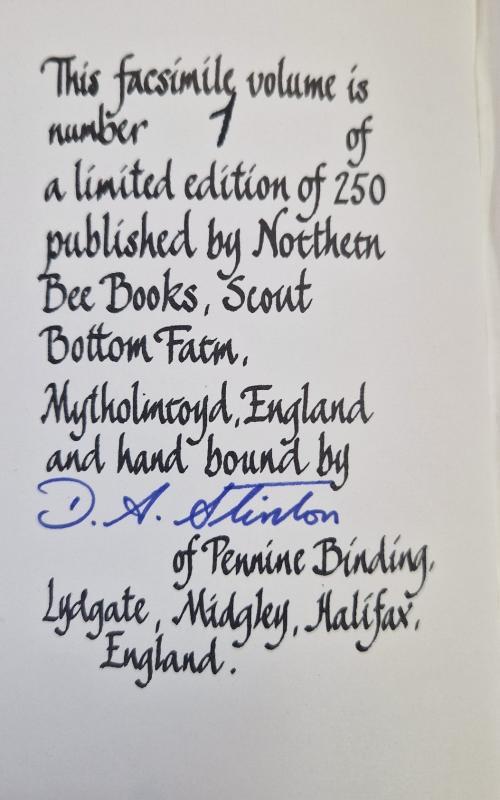 This facsimile volume is
number 1 of
a limited edition of 250
published by Northern
Bee Books, Scout
Bottom Farm,
Mytholmroyd, England
and hand bound by
D. A. Stinton
of Pennine Binding,
Lydgate, Midgley, Halifax,
England.